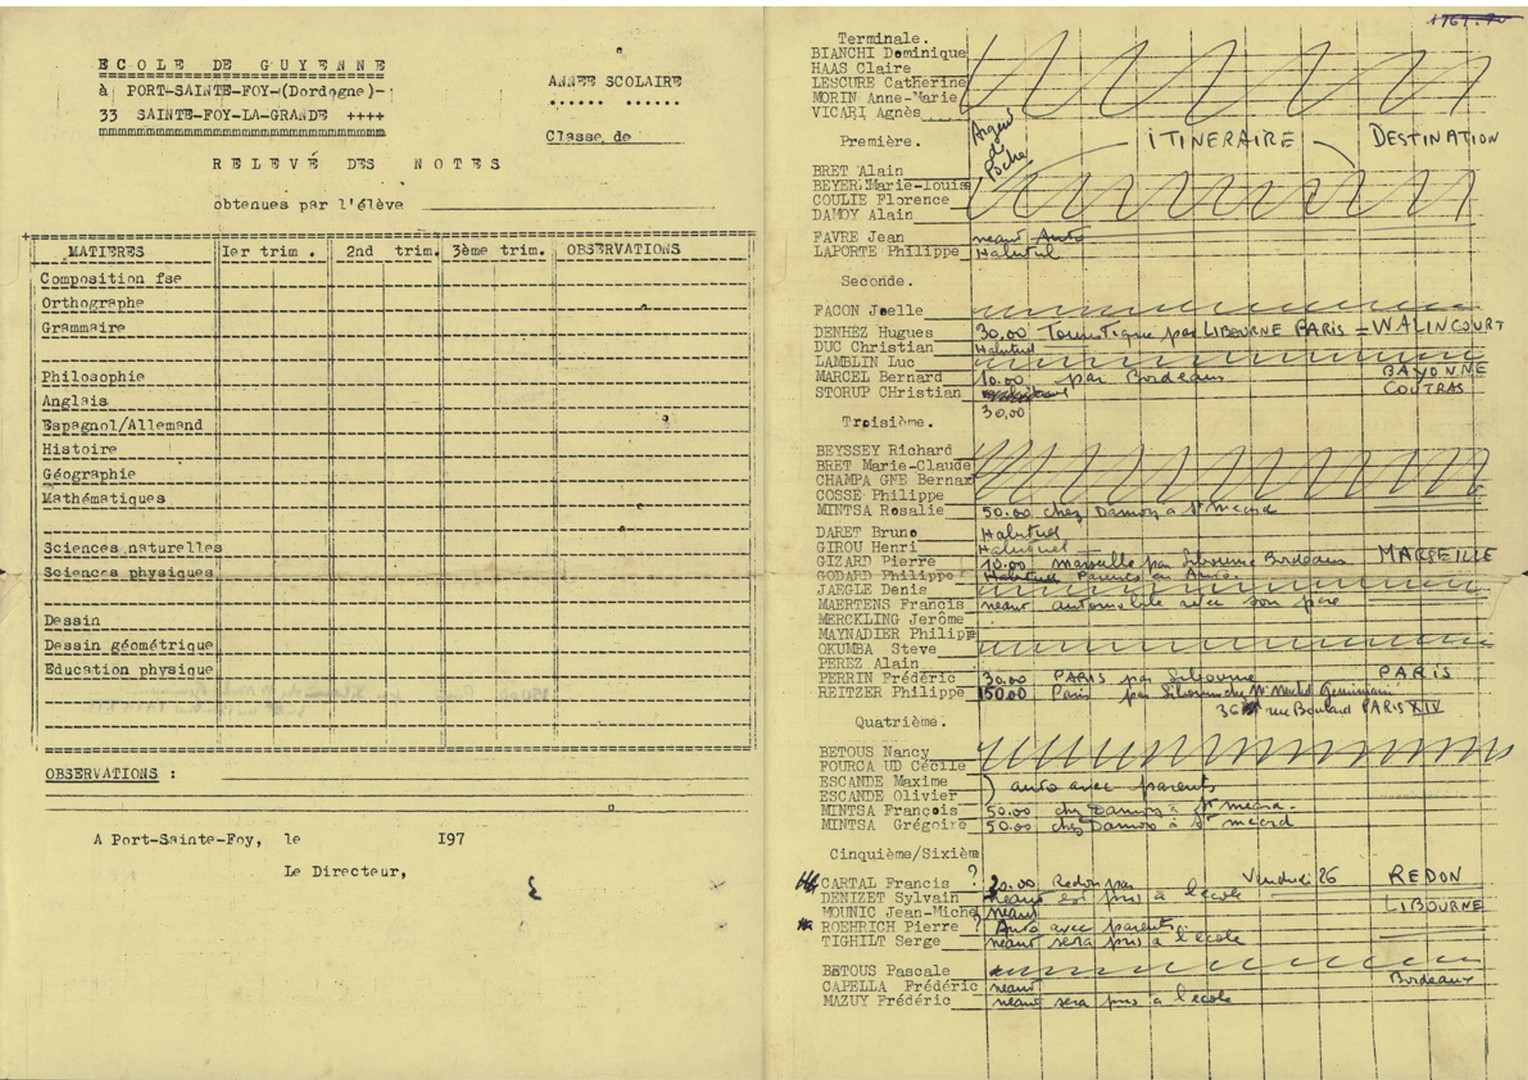 ECOLE DE GUYENNE
à PORT-SAINTE-FOY-(Dordogne)-
33 SAINTE-FOY-LA-GRANDE ++++
ANNEE SCOLAIRE
...... ......
Classe de
RELEVÉ DES NOTES
obtenues par l'élève
MATIERES Ier trim . 2nd trim. 3ème trim. OBSERVATIONS
Composition fse
Orthographe
Grammaire
Philosophie
Anglais
Espagnol/Allemand
Histoire
Géographie
Mathématiques
Sciences naturelles
Sciences physiques
Dessin
Dessin géométrique
Education physique
OBSERVATIONS :
A Port-Sainte-Foy, le 197
Le Directeur,
1969-70
Terminale.
BIANCHI Dominique
HAAS Claire
LESCURE Catherine
MORIN Anne-Marie
VICARI Agnès
Première. Argent de Poche ITINERAIRE DESTINATION
BRET Alain
BEYER Marie-Louise
COULIE Florence
DAMOY Alain
FAVRE Jean neant Auto
LAPORTE Philippe Habituel
Seconde.
FACON Joelle
DENHEZ Hugues 30.00 Touristique par LIBOURNE PARIS = WALINCOURT
DUC Christian Habituel
LAMBLIN Luc
MARCEL Bernard 10.00 par Bordeaux BAYONNE
STORUP CHristian COUTRAS
30,00
Troisième.
BEYSSEY Richard
BRET Marie-Claude
CHAMPA GNE Bernar
COSSE Philippe
MINTSA Rosalie 50.00 chez Damoy à St Meard
DARET Bruno Habituel
GIROU Henri Habituel
GIZARD Pierre 10.00 Marseille par Libourne Bordeaux MARSEILLE
GODARD Philippe Habituel Parents en Auto.
JAEGLE Denis
MAERTENS Francis neant automobile avec son père
MERCKLING Jerôme
MAYNADIER Philipp
OKUMBA Steve
PEREZ Alain
PERRIN Frédéric 30.00 PARIS par Libourne PARIS
REITZER Philippe 150.00 Paris par Libourne chez Mr Michel
36 rue Boulard PARIS XIV
Quatrième.
BETOUS Nancy
FOURCA UD Cécile
ESCANDE Maxime ) auto avec parents
ESCANDE Olivier
MINTSA François 50.00 chez Damoy à St Meard.
MINTSA Grégoire 50.00 chez Damoy à St Meard
Cinquième/Sixièm
CARTAL Francis ? 20.00 Redon par Vendredi 26 REDON
DENIZET Sylvain neant est pris à l'école
MOUNIC Jean-Miche neant LIBOURNE
ROEHRICH Pierre ? Auto avec parents.
TIGHILT Serge neant sera pris à l'école
BETOUS Pascale
CAPELLA Frédéric neant Bordeaux
MAZUY Frédéric neant sera pris à l'école